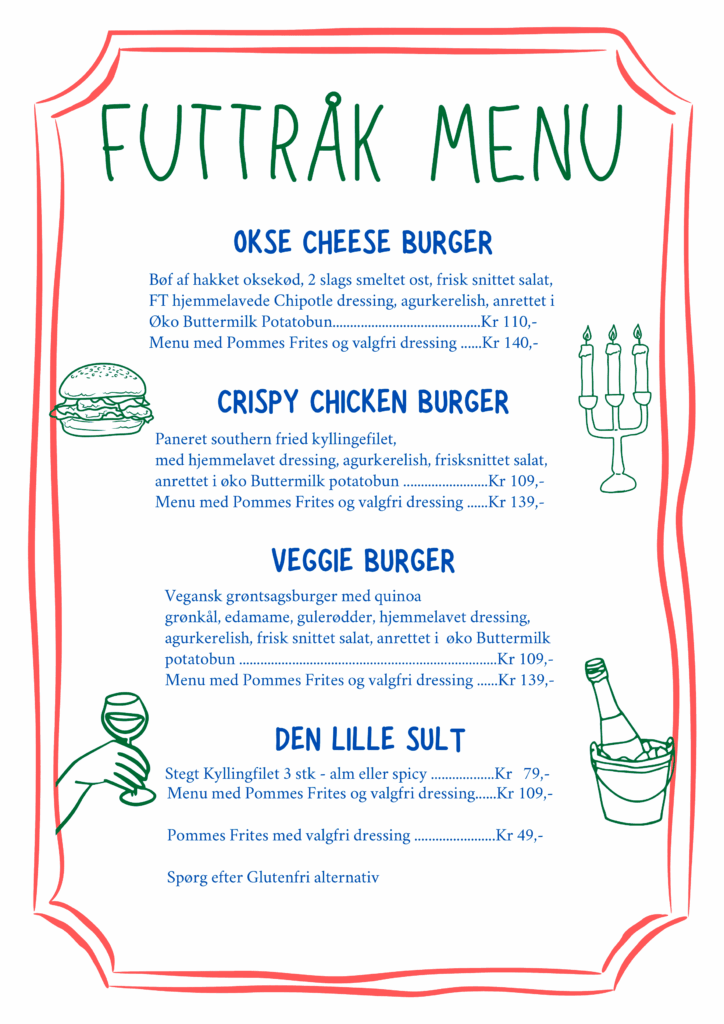 FUTTRÅK MENU
OKSE CHEESE BURGER
Bøf af hakket oksekød, 2 slags smeltet ost, frisk snittet salat,
FT hjemmelavede Chipotle dressing, agurkerelish, anrettet i
Øko Buttermilk Potatobun..........................................Kr 110,-
Menu med Pommes Frites og valgfri dressing ......Kr 140,-
CRISPY CHICKEN BURGER
Paneret southern fried kyllingefilet,
med hjemmelavet dressing, agurkerelish, frisksnittet salat,
anrettet i øko Buttermilk potatobun ........................Kr 109,-
Menu med Pommes Frites og valgfri dressing ......Kr 139,-
VEGGIE BURGER
Vegansk grøntsagsburger med quinoa
grønkål, edamame, gulerødder, hjemmelavet dressing,
agurkerelish, frisk snittet salat, anrettet i øko Buttermilk
potatobun .........................................................................Kr 109,-
Menu med Pommes Frites og valgfri dressing ......Kr 139,-
DEN LILLE SULT
Stegt Kyllingfilet 3 stk - alm eller spicy ..................Kr 79,-
Menu med Pommes Frites og valgfri dressing......Kr 109,-
Pommes Frites med valgfri dressing .......................Kr 49,-
Spørg efter Glutenfri alternativ